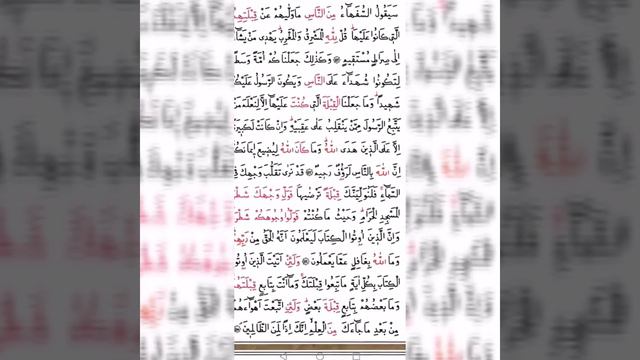 سَيَقُولُ السُّفَهَاءُ مِنَ النَّاسِ مَا وَلّٰيهُمْ عَنْ قِبْلَتِهِمُ
الَّتِي كَانُوا عَلَيْهَا قُلْ لِلّٰهِ الْمَشْرِقُ وَالْمَغْرِبُ يَهْدِي مَنْ يَشَاءُ
اِلٰى صِرَاطٍ مُسْتَقِيمٍ وَكَذٰلِكَ جَعَلْنَاكُمْ اُمَّةً وَسَطًا
لِتَكُونُوا شُهَدَاءَ عَلَى النَّاسِ وَيَكُونَ الرَّسُولُ عَلَيْكُمْ
شَهِيدًا وَمَا جَعَلْنَا الْقِبْلَةَ الَّتِي كُنْتَ عَلَيْهَا اِلَّا لِنَعْلَمَ مَنْ
يَتَّبِعُ الرَّسُولَ مِمَّنْ يَنْقَلِبُ عَلٰى عَقِبَيْهِ وَاِنْ كَانَتْ لَكَبِيرَةً
اِلَّا عَلَى الَّذِينَ هَدَى اللّٰهُ وَمَا كَانَ اللّٰهُ لِيُضِيعَ اِيمَانَكُمْ
اِنَّ اللّٰهَ بِالنَّاسِ لَرَؤُفٌ رَحِيمٌ قَدْ نَرٰى تَقَلُّبَ وَجْهِكَ فِي
السَّمَاءِ فَلَنُوَلِّيَنَّكَ قِبْلَةً تَرْضٰيهَا فَوَلِّ وَجْهَكَ شَطْرَ
الْمَسْجِدِ الْحَرَامِ وَحَيْثُ مَا كُنْتُمْ فَوَلُّوا وُجُوهَكُمْ شَطْرَهُ
وَاِنَّ الَّذِينَ اُوتُوا الْكِتَابَ لَيَعْلَمُونَ اَنَّهُ الْحَقُّ مِنْ رَبِّهِمْ
وَمَا اللّٰهُ بِغَافِلٍ عَمَّا يَعْمَلُونَ وَلَئِنْ اَتَيْتَ الَّذِينَ اُوتُوا
الْكِتَابَ بِكُلِّ اٰيَةٍ مَا تَبِعُوا قِبْلَتَكَ وَمَا اَنْتَ بِتَابِعٍ قِبْلَتَهُمْ
وَمَا بَعْضُهُمْ بِتَابِعٍ قِبْلَةَ بَعْضٍ وَلَئِنِ اتَّبَعْتَ اَهْوَاءَهُمْ
مِنْ بَعْدِ مَا جَاءَكَ مِنَ الْعِلْمِ اِنَّكَ اِذًا لَمِنَ الظَّالِمِينَ